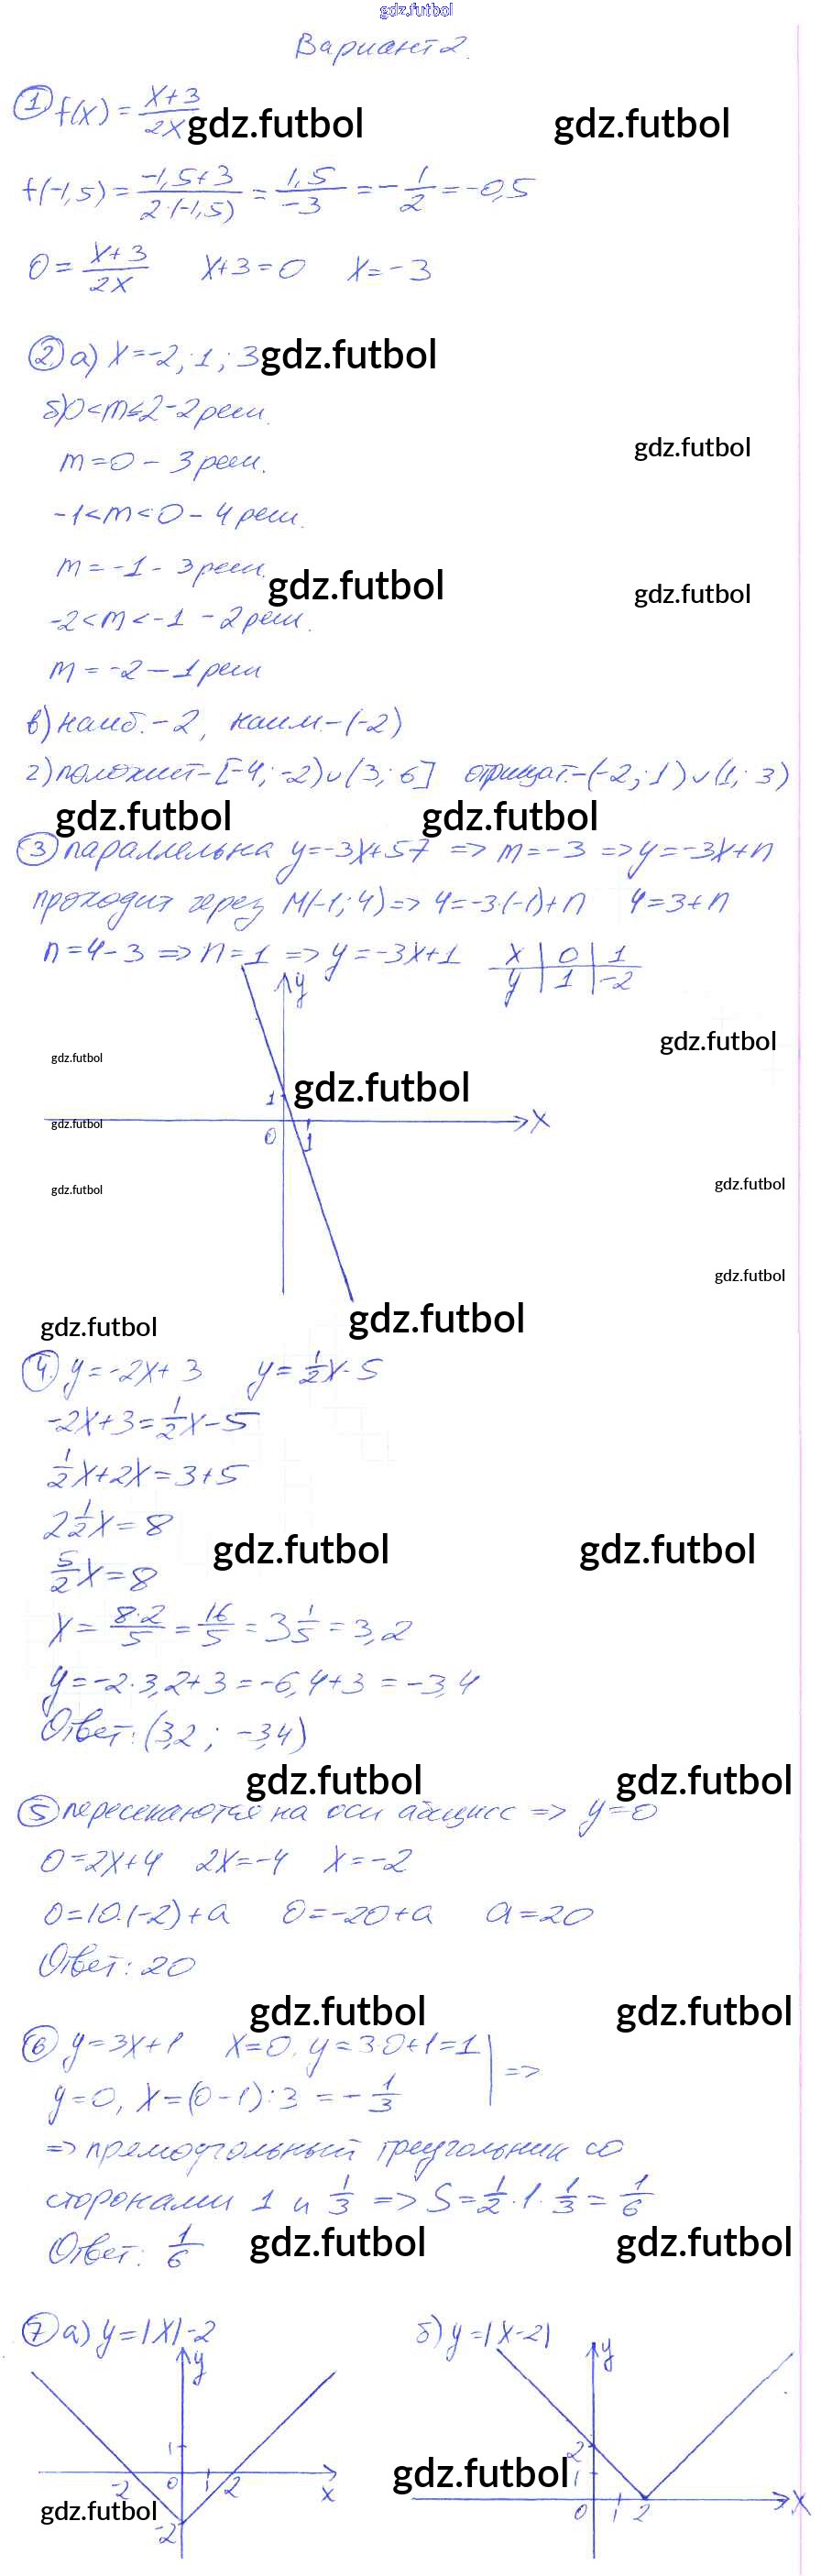 gdz.futbol
Вариант 2.
① f(x) = (x+3)/(2x) gdz.futbol gdz.futbol
f(-1,5) = (-1,5+3)/(2·(-1,5)) = 1,5/(-3) = -1/2 = -0,5
0 = (x+3)/(2x) x+3=0 x=-3
② а) x=-2; 1; 3 gdz.futbol
б) 0<m≤2 - 2 реш.
gdz.futbol
m=0 - 3 реш.
-1<m<0 - 4 реш.
m=-1 - 3 реш. gdz.futbol gdz.futbol
-2<m<-1 - 2 реш.
m=-2 - 1 реш
в) наиб. - 2, наим. - (-2)
г) положит - [-4; -2)∪(3; 6] отрицат. - (-2; 1)∪(1; 3)
gdz.futbol gdz.futbol
③ параллельна y=-3x+57 => m=-3 => y=-3x+n
проходит через M(-1; 4) => 4=-3·(-1)+n 4=3+n
n=4-3 => n=1 => y=-3x+1 x | 0 | 1
y | 1 | -2
y
gdz.futbol gdz.futbol
1 gdz.futbol
gdz.futbol 0 1 x
gdz.futbol gdz.futbol
gdz.futbol
gdz.futbol gdz.futbol
④. y=-2x+3 y=1/2x-5
-2x+3=1/2x-5
1/2x+2x=3+5
2 1/2x=8
gdz.futbol gdz.futbol
5/2x=8
x=(8·2)/5=16/5=3 1/5=3,2
y=-2·3,2+3=-6,4+3=-3,4
Ответ: (3,2; -3,4)
gdz.futbol gdz.futbol
⑤ пересекаются на оси абсцисс => y=0
0=2x+4 2x=-4 x=-2
0=10·(-2)+a 0=-20+a a=20
Ответ: 20
gdz.futbol gdz.futbol
⑥ y=3x+1 x=0, y=3·0+1=1 | =>
y=0, x=(0-1):3=-1/3
=> прямоугольный треугольник со
сторонами 1 и 1/3 => S=1/2·1·1/3=1/6
Ответ: 1/6 gdz.futbol gdz.futbol
⑦ а) y=|x|-2 б) y=|x-2|
y y
1 2
-2 0 1 2 x gdz.futbol 1
gdz.futbol 0 1 2 x
-2